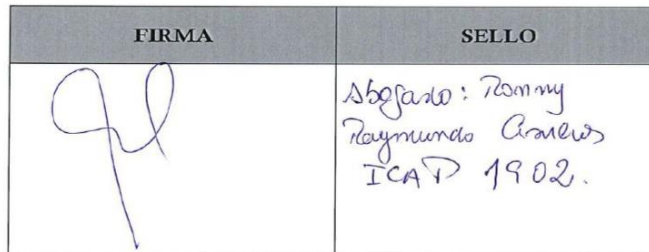 FIRMA
SELLO
Abogado: Ronny
Raymundo Cisneros
ICAP 1902.